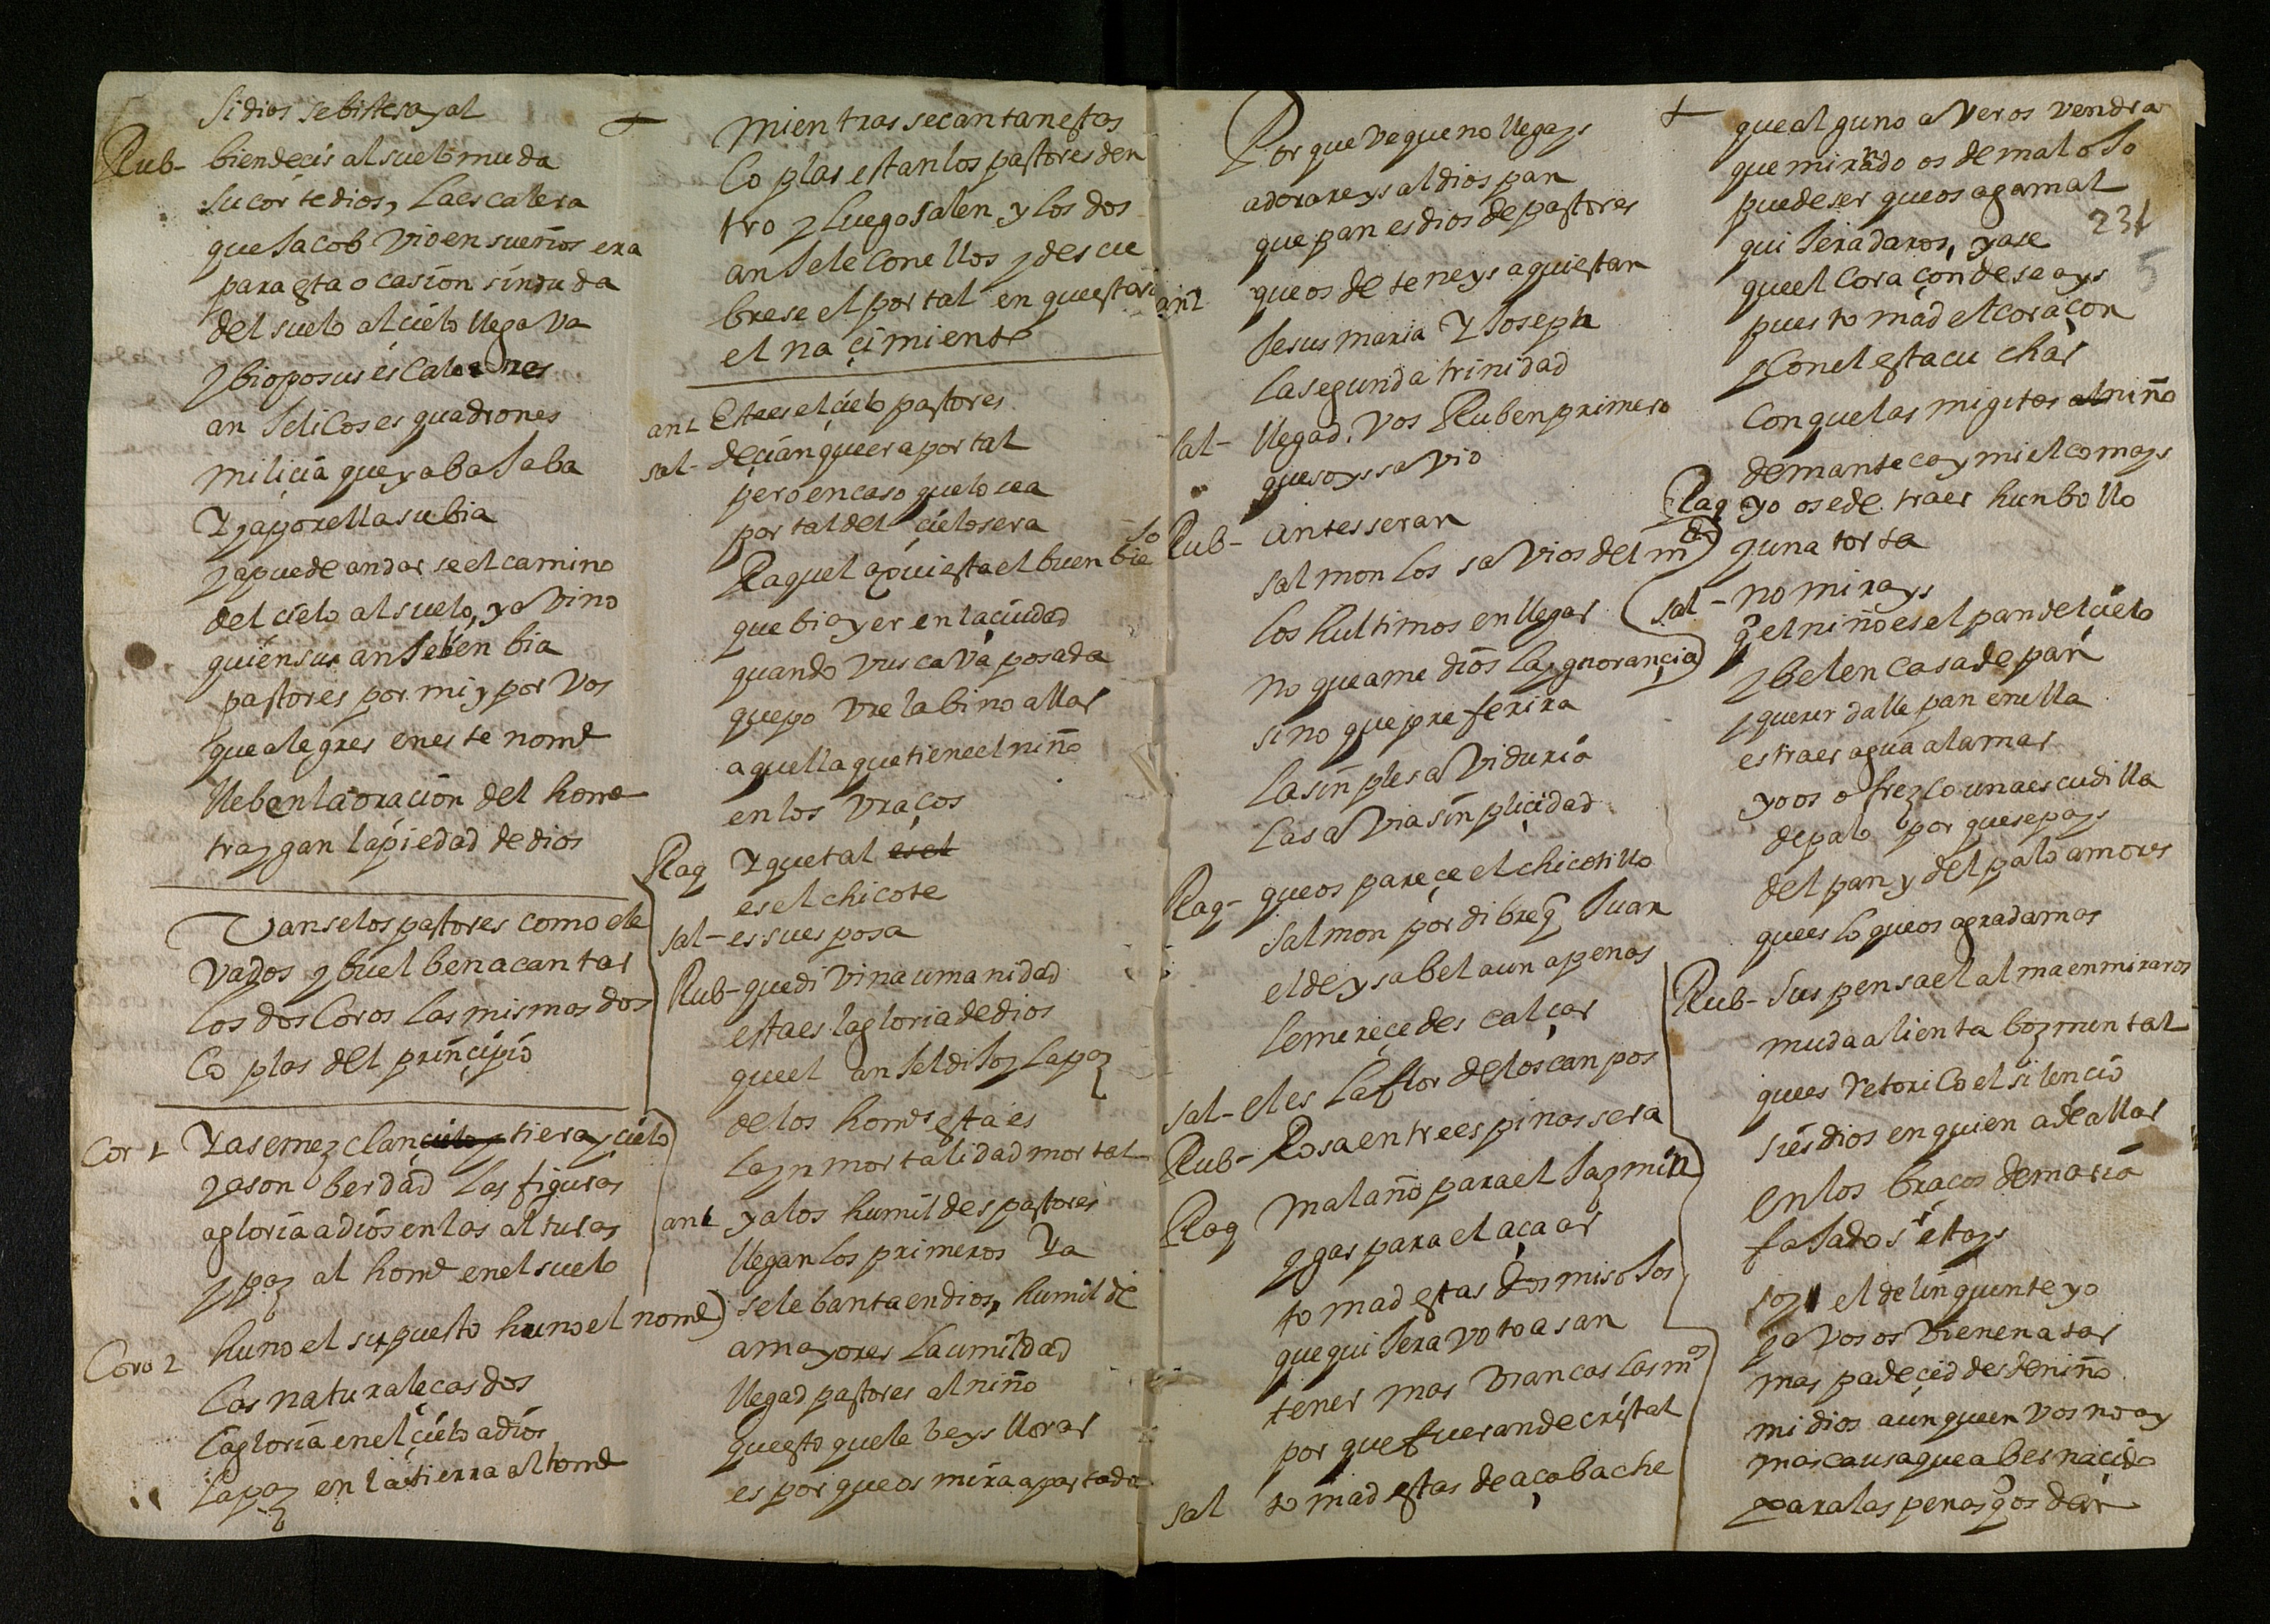 si dios se biste sayal
Rub- bien decis al suelo muda
su corte dios, la escalera
que Jacob vio en sueños era
para esta ocasion sin duda
del suelo al cielo llegava
y bio por sus escalones
anJelicos esquadrones
miliçia que ya baJaba
Y ya por ella subia
ya puede andarse el camino
del cielo al suelo, ya vino
quien sus anJeles enbia
pastores por mi y por vos
que alegres en este nomẽ
lleben la oraçion del homẽ
traygan la piedad de dios
Vanse los pastores como ele
vados y buelben a cantar
los dos coros las mismas dos
coplas del prinçipio
Cor 1 Ya se mezclan cielo y tiera y çielo
ya son berdad las figuras
a gloria a dios en las alturas
y paz al homẽ en el suelo
Coro 2 huno el supuesto huno el nomẽ
las naturaleças dos
la gloria en el çielo a dios
la paz en la tierra al homẽ
+
mientras se cantan estas
coplas estan los pastores den
tro y luego salen y los dos
anJele con ellos y descu
brese el portal en que estara
el naçimiento
an 1 Este es el cielo pastores
sal- deçian que era portal
pero en caso que lo sea
portal del çielo sera
Raquel aqui esta el buen bieJo
que bi ayer en la çiudad
quando vuscava posada
que povre la bino a llar
aquella que tiene el niño
en los vraços
Raq Y que tal es el
es el chicote
sal- es su esposa
Rub- que divina umanidad
esta es la gloria de dios
que el anJel diJo y la paz
de los homẽs esta es
la ynmortalidad mortal
an 1 ya los humildes pastores
llegan los primeros Ya
se lebanta en dios, humilde
a mayores la umildad
llegad pastores al niño
que esto que le beys llorar
es por que os mira apartados
Por que ve que no llegays
adorareys al dios pan
que pan es dios de pastores
an 2 que os deteneys aqui estan
Jesus maria Y Joseph
la segunda trinidad
sal- llegad. vos Ruben primero
que soys savio
Rub- antes seran
salmon los savios del mdo
los hultimos en llegar
no que ame dios la ygnorançia
sino que preferira
la sinple saviduria
la savia sinpliçidad
Raq- que os pareçe el chicotillo
salmon por dibre q̃ Juan
el de ysabel aun apenas
le mereçe descalçar
sal- el es la flor de los canpos
Rub- Rosa entre espinas sera
Raq mal año para el Jazmin
y gas para el açaar
tomad estas dos mis oJos
que quiJera voto a san
tener mas vrancas las mos
por que fueran de cristal
sal tomad estas de açabache
+
que alguno a veros vendra
que mirando os de mal oJo
puede ser que os aga mal
quiJera daros, ya se
que el coraçon deseays
pues tomad el coraçon
y con el esta cuchar
con que las migitas al niño
de manteca y miel comays
Raq yo os e de traer hun bollo
y una torta
sal- no mirays
q̃ el niño es el pan del çielo
y belen casa de pan
y querer dalle pan en ella
es traer agua a la mar
yo os ofrezco una escudilla
de palo por que sepays
del pan y del palo amores
que es lo que os agrada mas
Rub- suspensa el alma en miraros
muda alienta boz mental
que es retorico el silençio
si es dios en quien a de allar
en los braços de maria
faJados estays
soy el delinquente yo
y a vos os vienen a tar
mas padeçed desde niño
mi dios aunque en vos no ay
mas causa que aber naçido
para las penas q̃ os dan
231
5